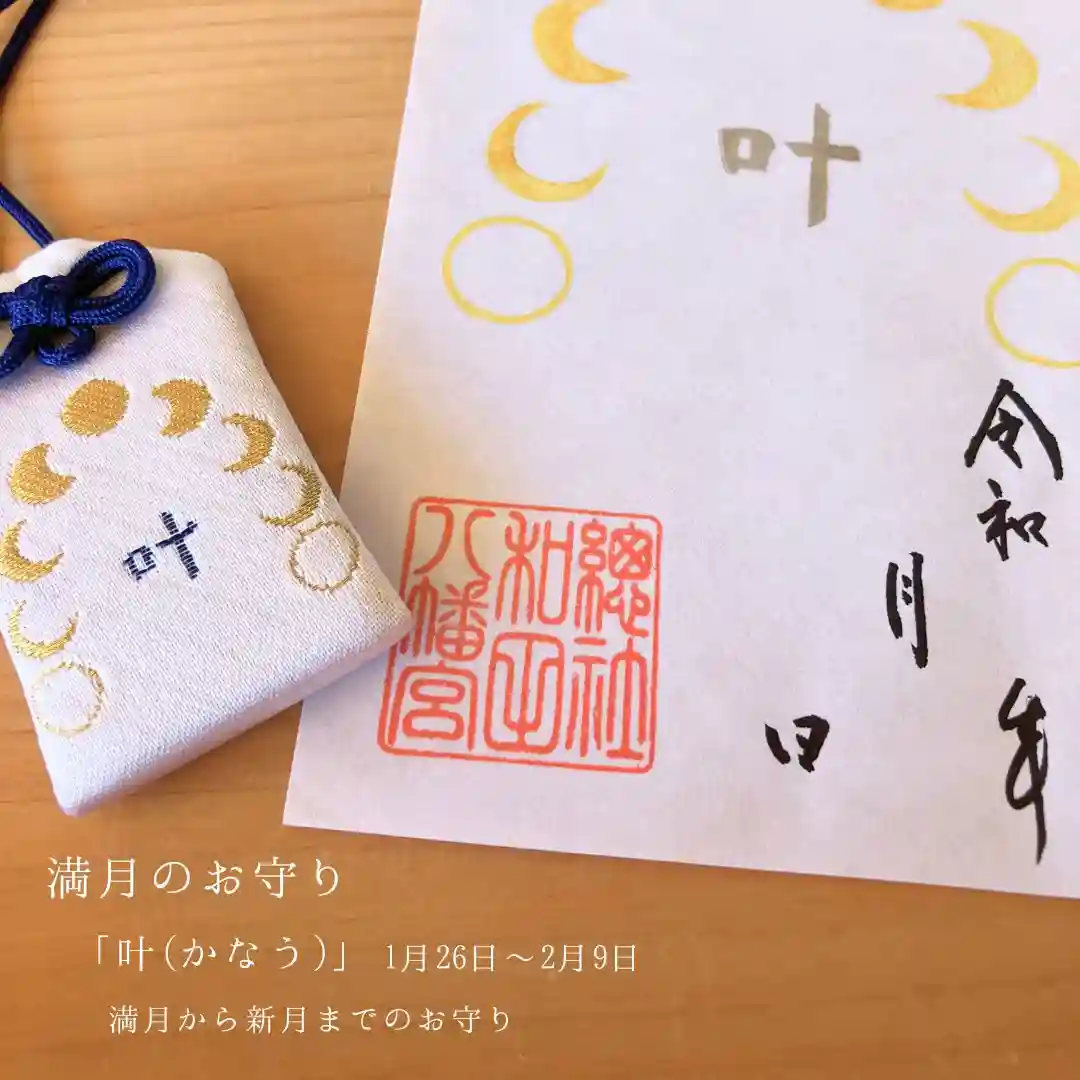 叶
令和 年
月
日
總社
和田
八幡宮
叶
満月のお守り
「叶(かなう)」 1月26日～2月9日
満月から新月までのお守り